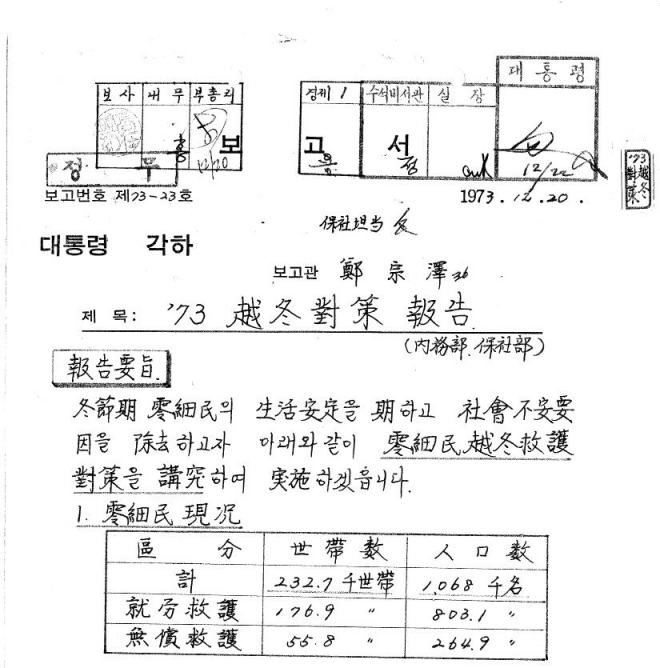 보사 내무 부총리
경제1 수석비서관 실장
대통령
보고서
정무
12/20
12/22
'73越冬對策
보고번호 제73-23호
1973. 12. 20.
保社担当
대통령 각하
보고관 鄭宗澤
제 목: '73 越冬對策 報告
(内務部.保社部)
報告要旨.
冬節期 零細民의 生活安定을 期하고 社會不安要
因을 除去하고자 아래와같이 零細民越冬救護
對策을 講究하여 実施하겠읍니다.
1. 零細民 現况
區 分 世帶數 人口數
計 232.7 千世帶 1,068 千名
就労救護 176.9 〃 803.1 〃
無償救護 55.8 〃 264.9 〃